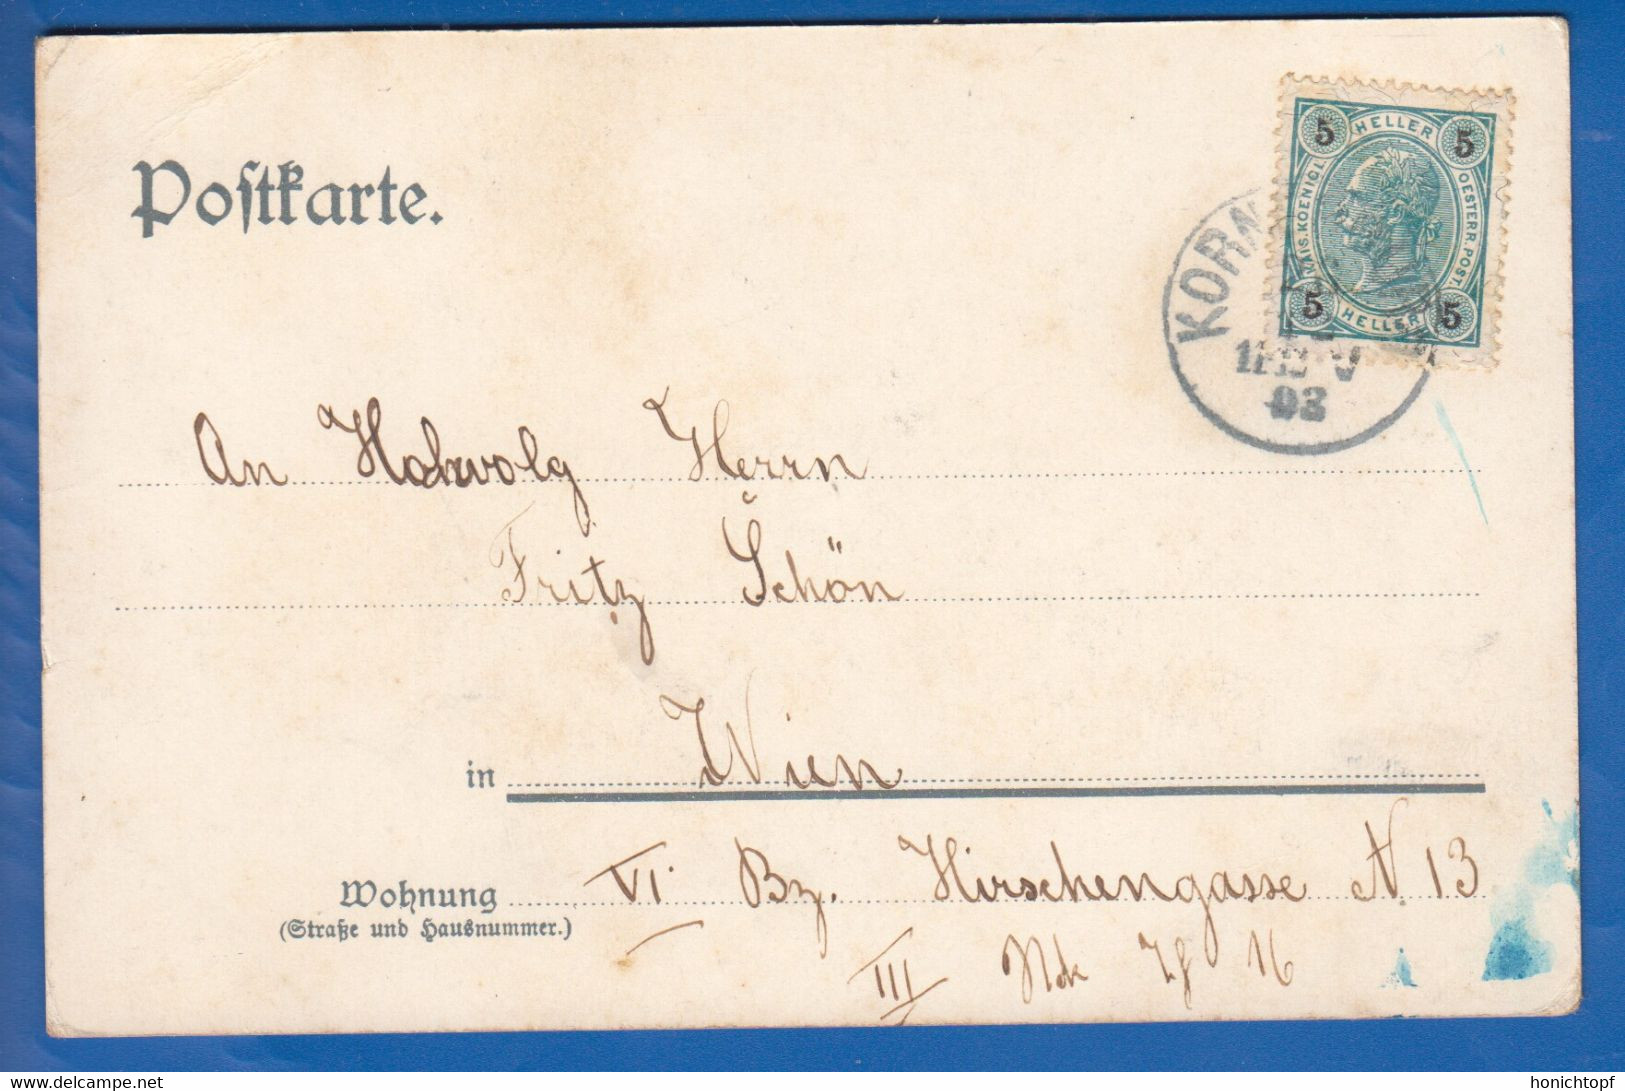 Postkarte.
5 HELLER 5
KAIS. KOENIGL. OESTERR. POST.
5 HELLER 5
KORN
03
An Hochwolg Herrn
Fritz Schön
in Wien
Wohnung VI. Bz. Hirschengasse N 13
(Straße und Hausnummer.)
III 16
delcampe.net
honichtopf